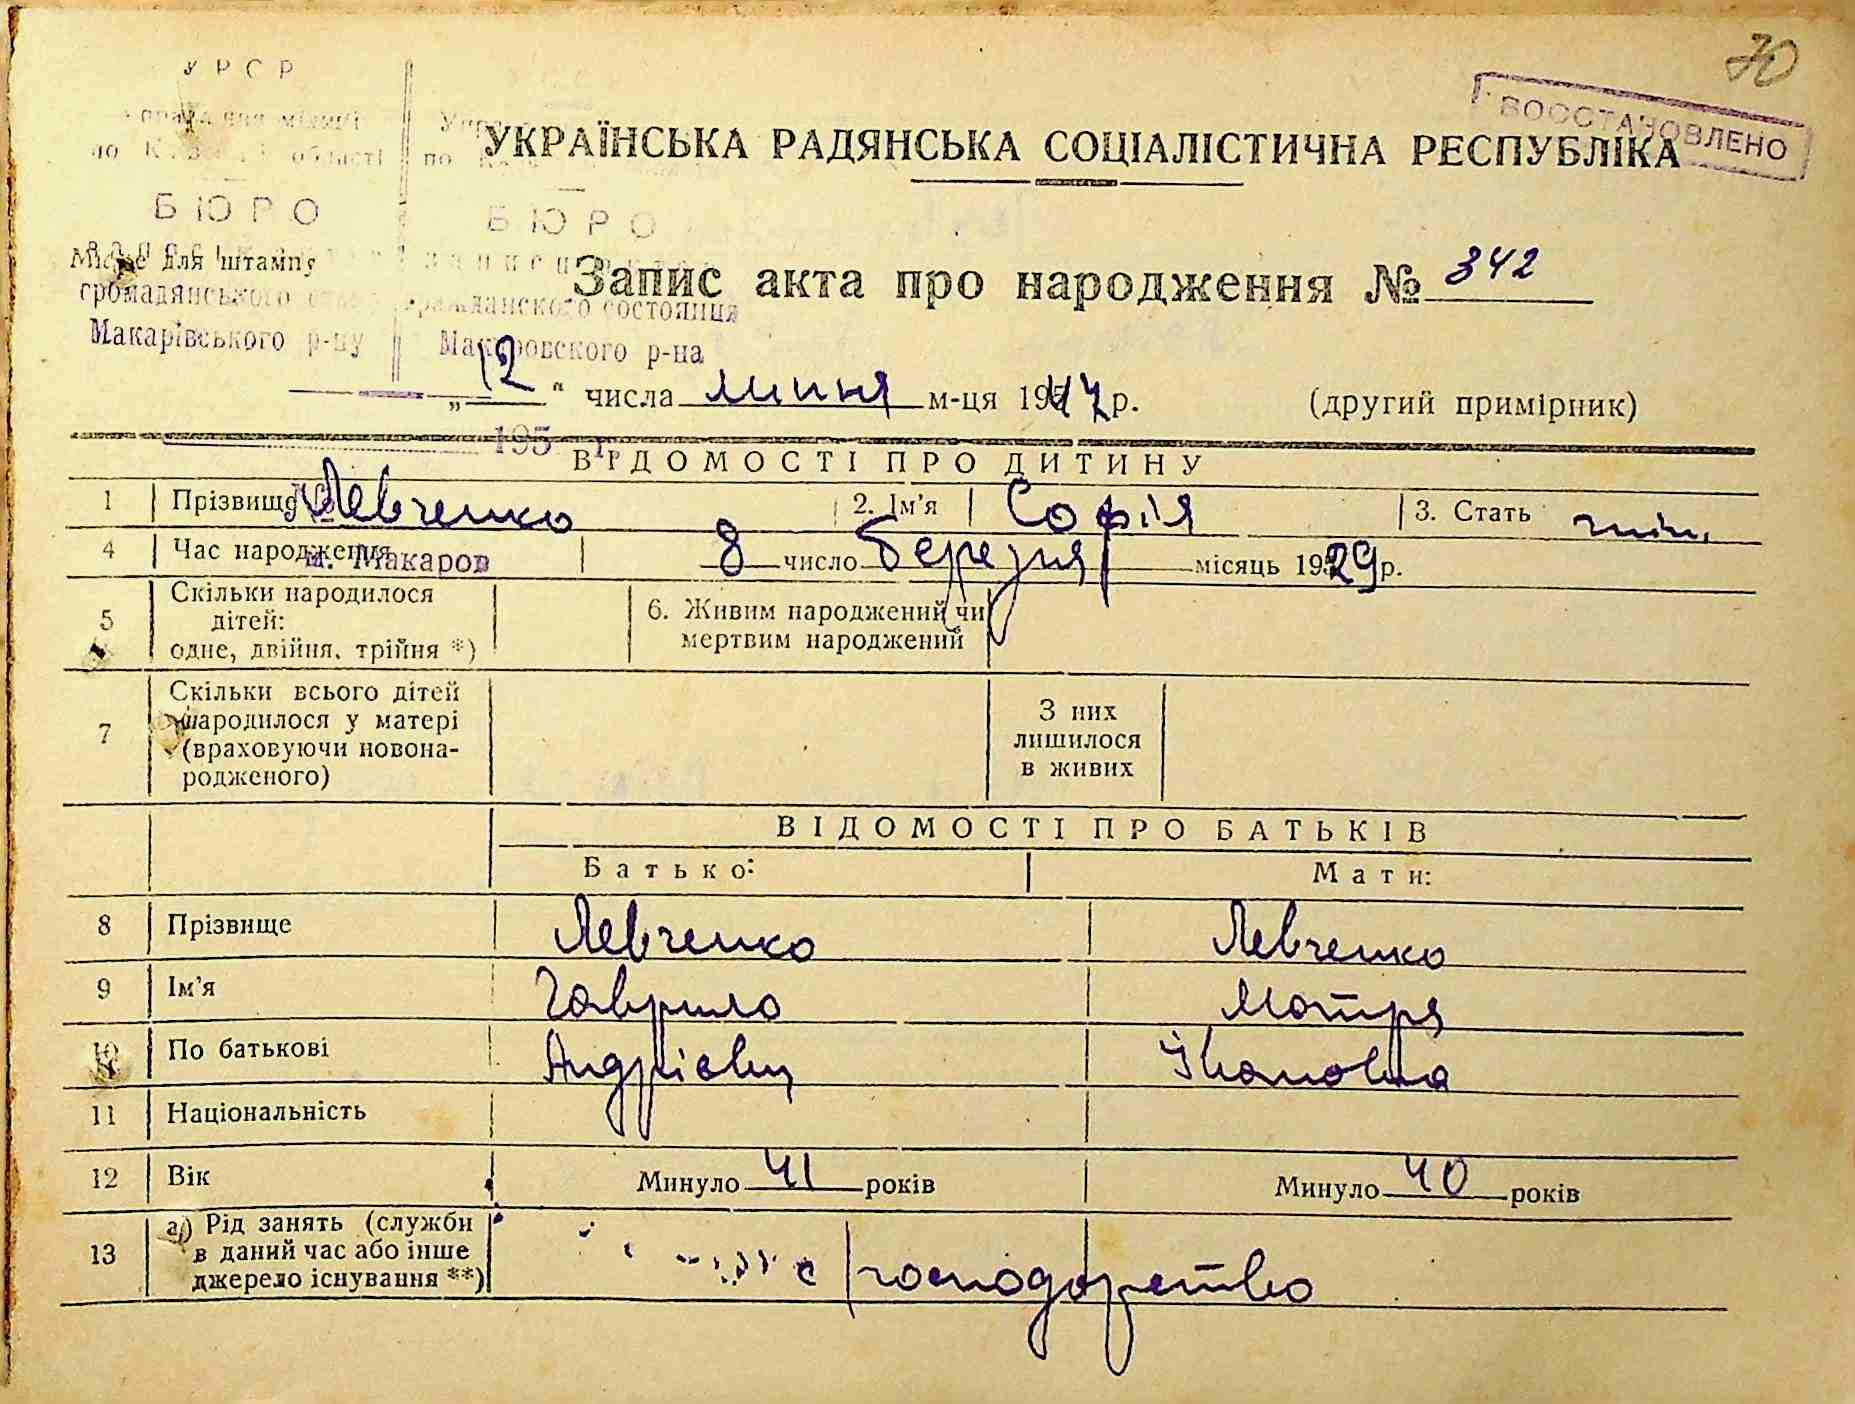 70
УРСР
ВОССТАНОВЛЕНО
УКРАЇНСЬКА РАДЯНСЬКА СОЦІАЛІСТИЧНА РЕСПУБЛІКА
по області по
БЮРО БЮРО
Місце для штампу
Запис акта про народження № 342
громадянського гражданского состояния
Макарівського р-ну Макаровского р-на
„12“ числа липня м-ця 1947 р. (другий примірник)
195
ВІДОМОСТІ ПРО ДИТИНУ
1 Прізвище Левченко 2. Ім'я Софія 3. Стать жін.
4 Час народження 8 число березня місяць 1929 р.
м. Макаров
5 Скільки народилося дітей: одне, двійня, трійня *) 6. Живим народжений чи мертвим народжений
7 Скільки всього дітей народилося у матері (враховуючи новонародженого) З них лишилося в живих
ВІДОМОСТІ ПРО БАТЬКІВ
Батько: Мати:
8 Прізвище Левченко Левченко
9 Ім'я Гаврило Мотря
10 По батькові Андрієвич Івановна
11 Національність
12 Вік Минуло 41 років Минуло 40 років
13 а) Рід занять (служби в даний час або інше джерело існування **) с/господарство